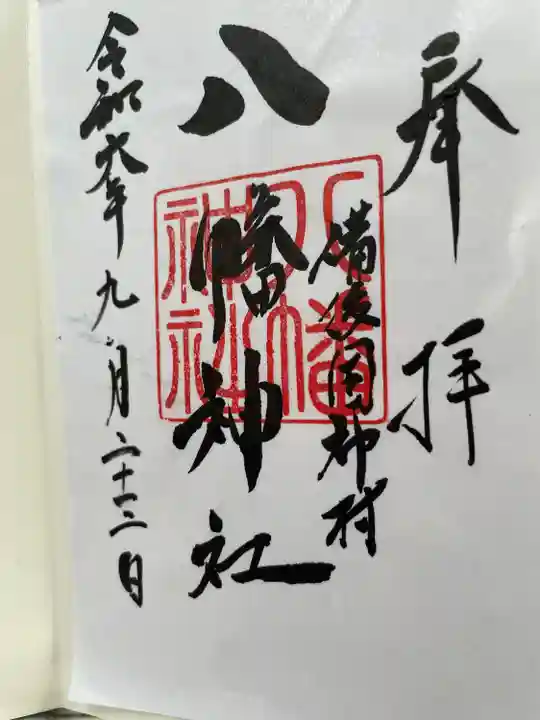 奉拝
備後国神村
八幡神社
八幡神社
令和六年九月二十三日